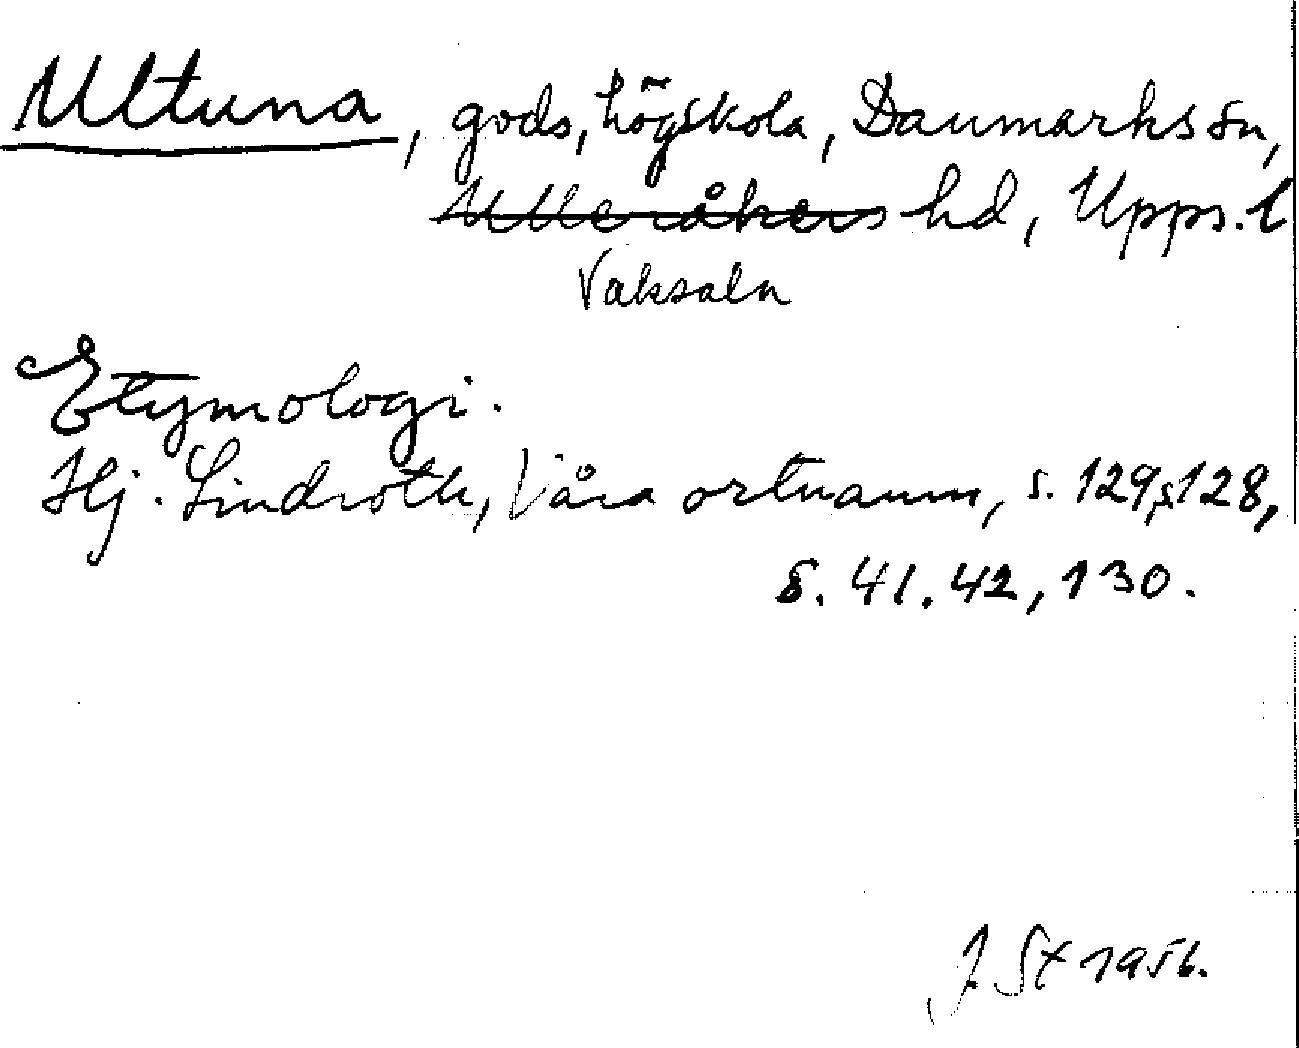 Ultuna, gods, högskola, Danmarks sn,
Ulleråkers hd, Upps. l
Vaksala
Etymologi.
Hj. Lindroth, Våra ortnamn, s. 129, s 128,
s. 41. 42, 130.
J. St 1956.